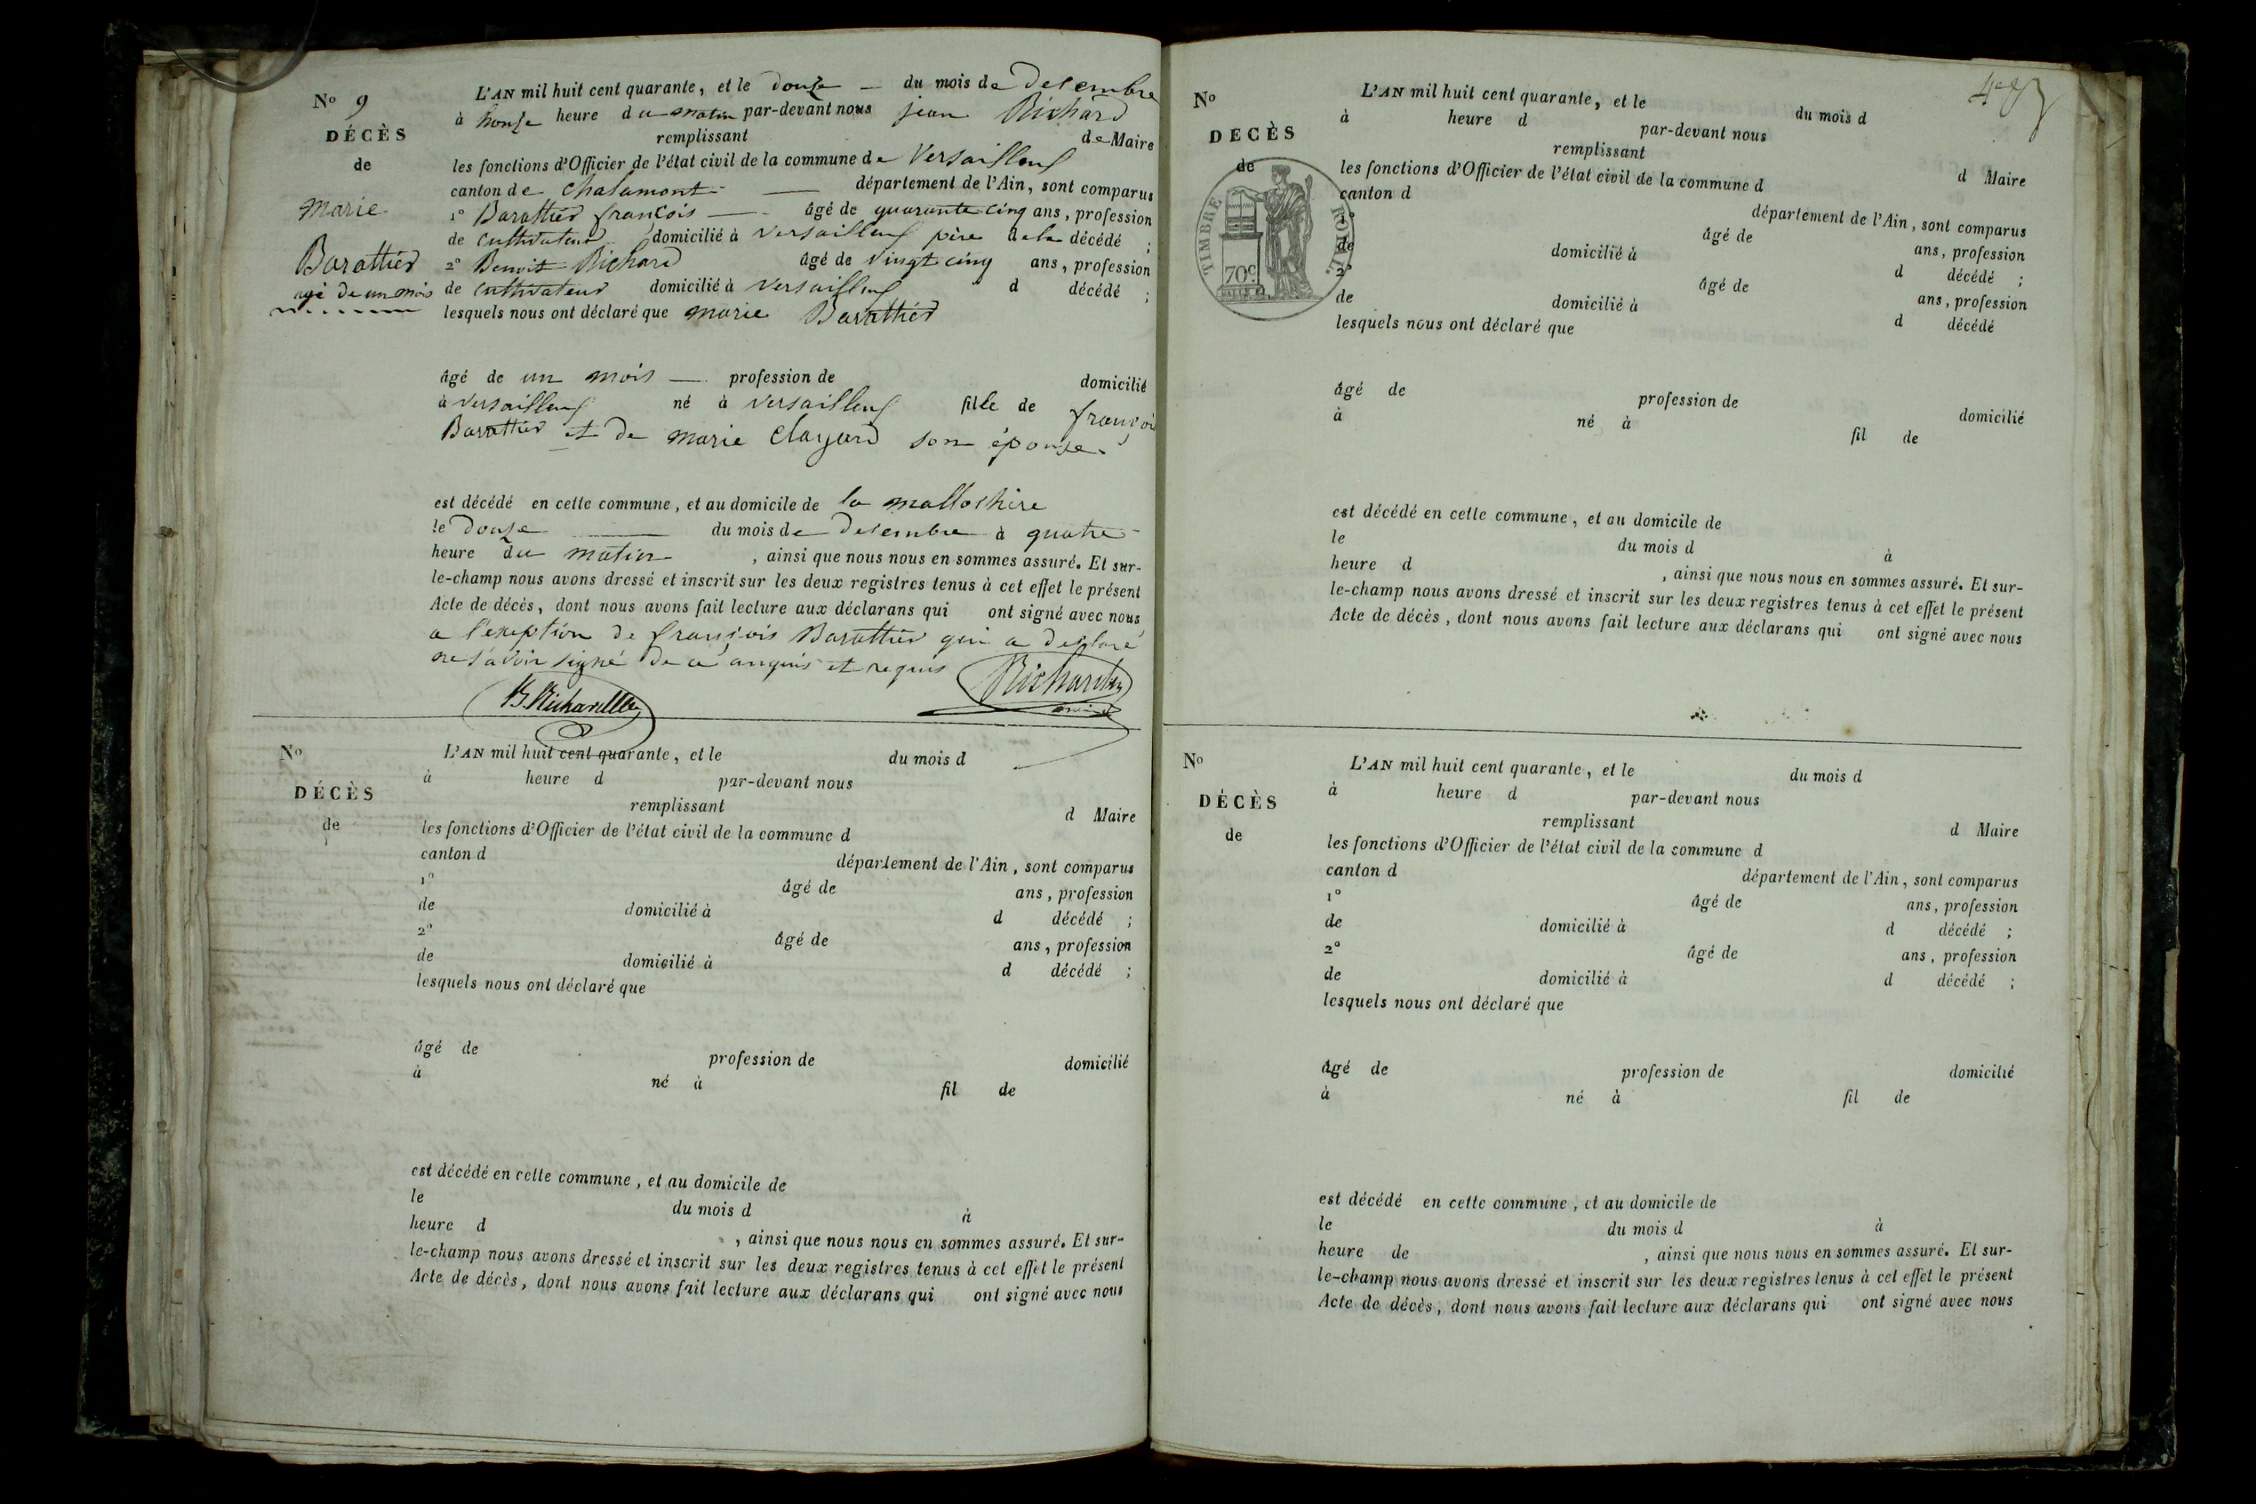 No 9
DÉCÈS
de
Marie
Barattier
agé de un mois
L'AN mil huit cent quarante, et le douze — du mois de decembre
à honze heure du matin par-devant nous jean Richard
remplissant de Maire
les fonctions d'Officier de l'état civil de la commune de Versailleux
canton de chalamont — département de l'Ain, sont comparus
1° Barattier françois — âgé de quarante cinq ans, profession
de cultivateur domicilié à versailleux père de la décédé ;
2° Benoit Richard âgé de vingt cinq ans, profession
de cultivateur domicilié à versailleux d décédé ;
lesquels nous ont déclaré que marie Barattier
âgé de un mois — profession de domicilié
à versailleux né à versailleux fille de françois
Barattier et de marie clayard son épouse.
est décédé en cette commune, et au domicile de la mallochire
le douze — du mois de decembre à quatre
heure du matin , ainsi que nous nous en sommes assuré. Et sur-
le-champ nous avons dressé et inscrit sur les deux registres tenus à cet effet le présent
Acte de décès, dont nous avons fait lecture aux déclarans qui ont signé avec nous
a l'exeption de françois Barattier qui a declaré
ne savoir signé de ce anquis et requis
No
DÉCÈS
de
L'AN mil huit cent quarante, et le du mois d
à heure d par-devant nous
remplissant d Maire
les fonctions d'Officier de l'état civil de la commune d
canton d département de l'Ain, sont comparus
1° âgé de ans, profession
de domicilié à d décédé ;
2° âgé de ans, profession
de domicilié à d décédé ;
lesquels nous ont déclaré que
âgé de profession de domicilié
à né à fil de
est décédé en cette commune, et au domicile de
le du mois d à
heure d , ainsi que nous nous en sommes assuré. Et sur-
le-champ nous avons dressé et inscrit sur les deux registres tenus à cet effet le présent
Acte de décès, dont nous avons fait lecture aux déclarans qui ont signé avec nous
No
DECÈS
de
TIMBRE ROYAL
70c
L'AN mil huit cent quarante, et le du mois d
à heure d par-devant nous
remplissant d Maire
les fonctions d'Officier de l'état civil de la commune d
canton d département de l'Ain, sont comparus
1° âgé de ans, profession
de domicilié à d décédé ;
2° âgé de ans, profession
de domicilié à d décédé
lesquels nous ont déclaré que
âgé de profession de domicilié
à né à fil de
est décédé en cette commune, et au domicile de
le du mois d à
heure d , ainsi que nous nous en sommes assuré. Et sur-
le-champ nous avons dressé et inscrit sur les deux registres tenus à cet effet le présent
Acte de décès, dont nous avons fait lecture aux déclarans qui ont signé avec nous
No
DÉCÈS
de
L'AN mil huit cent quarante, et le du mois d
à heure d par-devant nous
remplissant d Maire
les fonctions d'Officier de l'état civil de la commune d
canton d département de l'Ain, sont comparus
1° âgé de ans, profession
de domicilié à d décédé ;
2° âgé de ans, profession
de domicilié à d décédé ;
lesquels nous ont déclaré que
âgé de profession de domicilié
à né à fil de
est décédé en cette commune, et au domicile de
le du mois d à
heure de , ainsi que nous nous en sommes assuré. Et sur-
le-champ nous avons dressé et inscrit sur les deux registres tenus à cet effet le présent
Acte de décès, dont nous avons fait lecture aux déclarans qui ont signé avec nous